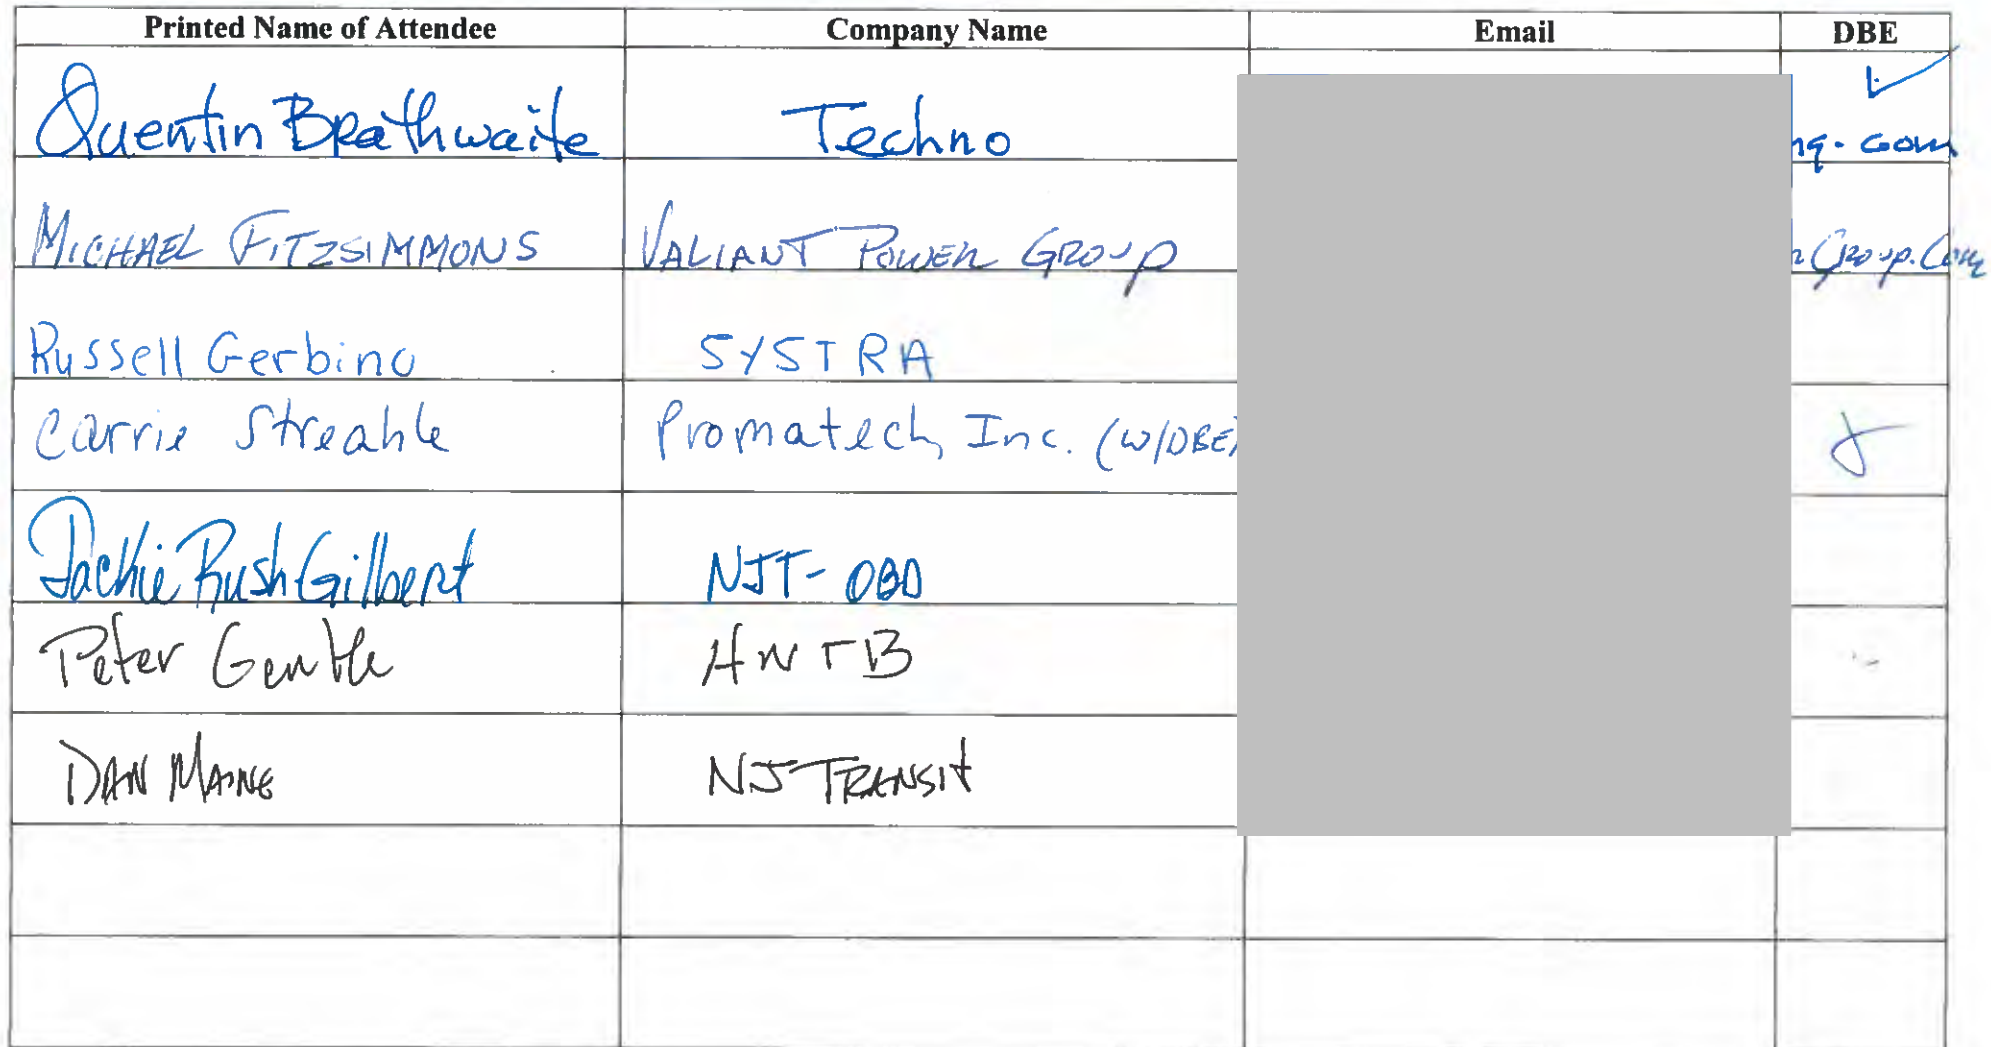 Printed Name of Attendee Company Name Email DBE
Quentin Brathwaite Techno ✓
ng.com
MICHAEL FITZSIMMONS VALIANT POWER GROUP Group.Com
Russell Gerbino SYSTRA
Carrie Streahle Promatech, Inc. (W/DBE)
Jackie Rush Gilbert NJT-OBD
Peter Gentle HNTB
DAN MAINE NJ TRANSIT